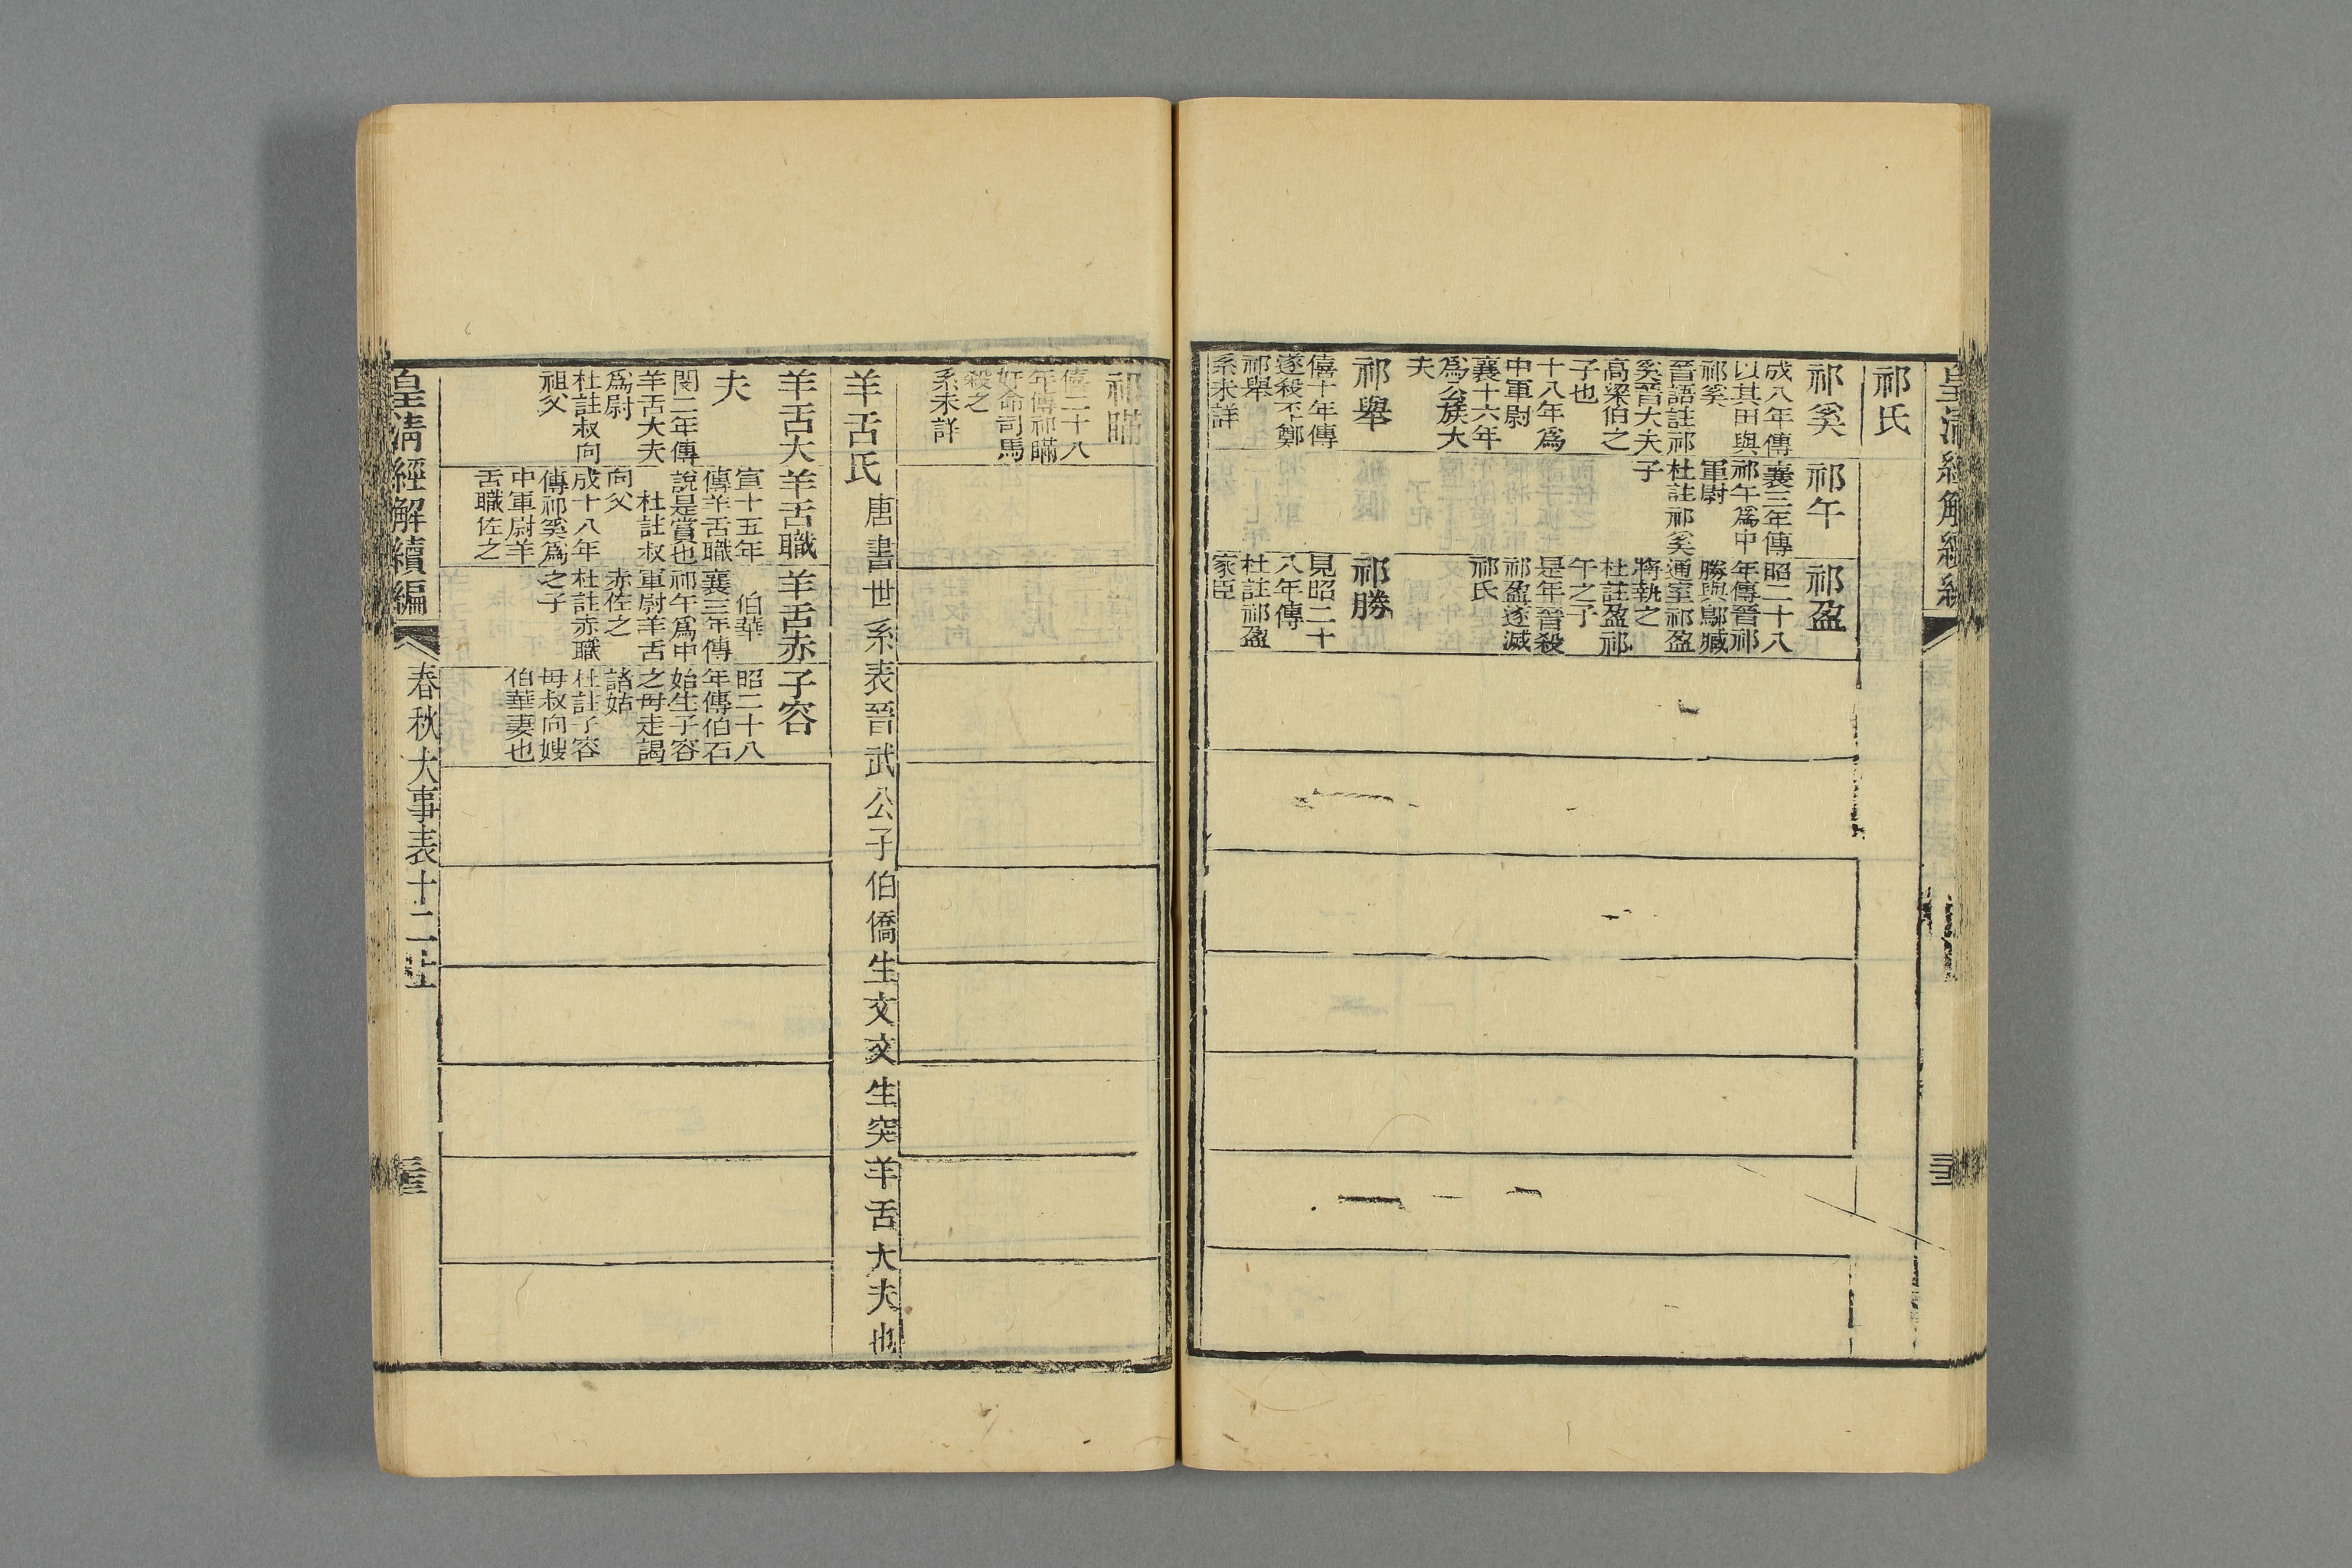 皇清經解續編
祁氏
祁奚
成八年傳
以其田與
祁奚
晉語註祁
奚晉大夫
高梁伯之
子也
十八年爲
中軍尉
襄十六年
爲公族大
夫
祁午
襄三年傳
祁午爲中
軍尉
杜註祁奚
子
祁盈
昭二十八
年傳晉祁
勝與鄔臧
通室祁盈
將執之
杜註盈祁
午之子
是年晉殺
祁盈遂滅
祁氏
祁舉
僖十年傳
遂殺丕鄭
祁舉
系未詳
祁勝
見昭二十
八年傳
杜註祁盈
家臣
祁瞞
僖二十八
年傳祁瞞
奸命司馬
殺之
系未詳
羊舌氏 唐書世系表晉武公子伯僑生文文生突羊舌大夫也
羊舌大
夫
閔二年傳
羊舌大夫
爲尉
杜註叔向
祖父
羊舌職
宣十五年
傳羊舌職
說是賞也
杜註叔
向父
成十八年
傳祁奚爲
中軍尉羊
舌職佐之
羊舌赤
伯華
襄三年傳
祁午爲中
軍尉羊舌
赤佐之
杜註赤職
之子
子容
昭二十八
年傳伯石
始生子容
之母走謁
諸姑
杜註子容
母叔向嫂
伯華妻也
皇清經解續編
春秋大事表十二上